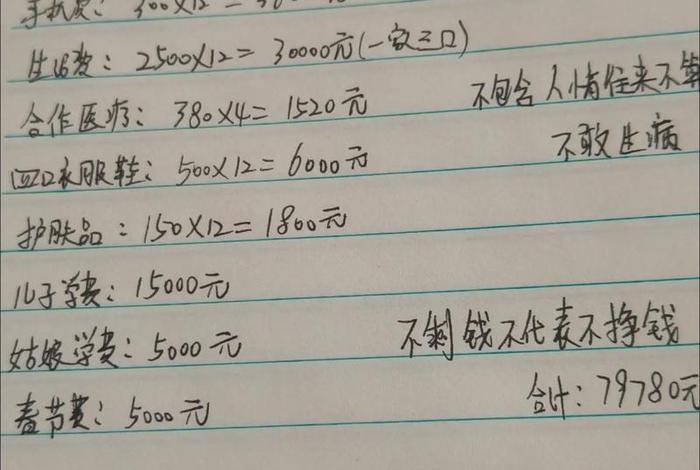 手机费: 300×12=36
生活费: 2500×12=30000元(一家三口)
合作医疗: 380×4=1520元
不包含人情往来不算
四口衣服鞋: 500×12=6000元
不敢生病
护肤品: 150×12=1800元
儿子学费: 15000元
姑娘学费: 5000元
不剩钱不代表不挣钱
春节费: 5000元
合计: 79780元